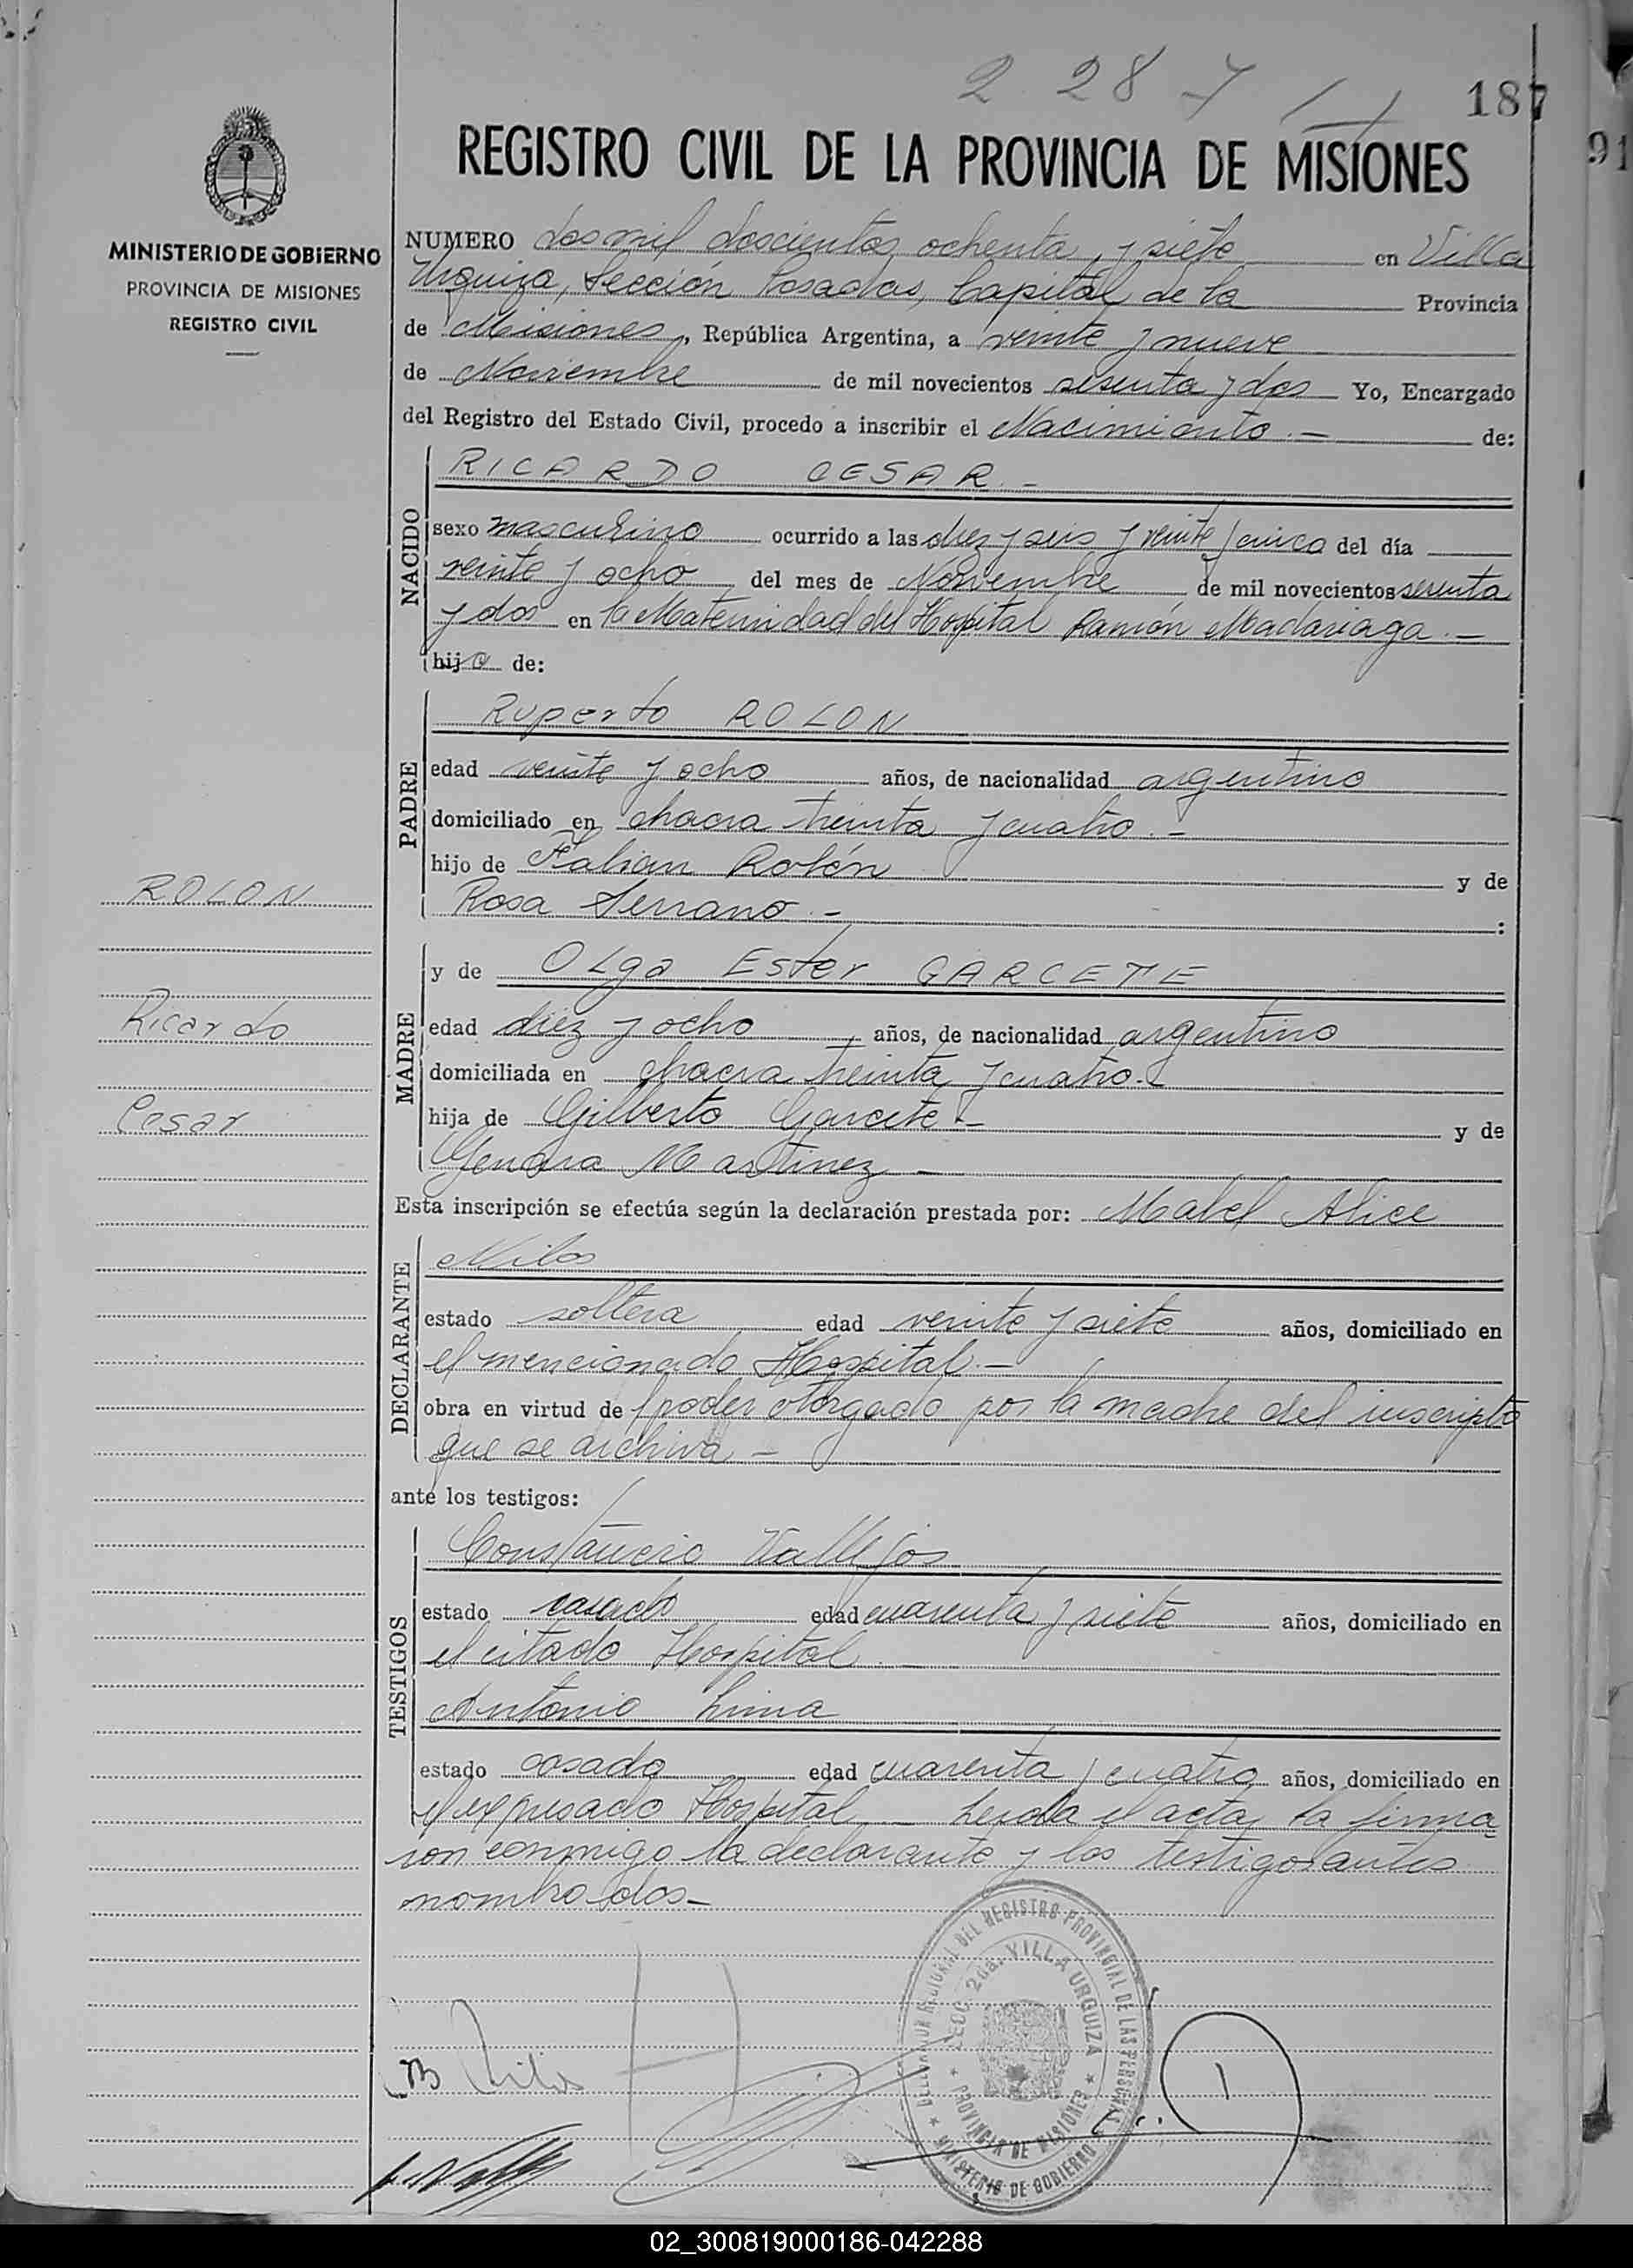 2 287
187
91
REGISTRO CIVIL DE LA PROVINCIA DE MISIONES
MINISTERIO DE GOBIERNO
PROVINCIA DE MISIONES
REGISTRO CIVIL
NUMERO dos mil doscientos ochenta y siete en Villa
Urquiza, Sección Posadas, Capital de la Provincia
de Misiones, República Argentina, a veinte y nueve
de Noviembre de mil novecientos sesenta y dos Yo, Encargado
del Registro del Estado Civil, procedo a inscribir el Nacimiento.- de:
NACIDO
RICARDO CESAR.-
sexo masculino ocurrido a las diez y seis y veinte y cinco del día
veinte y ocho del mes de Noviembre de mil novecientos sesenta
y dos en la Maternidad del Hospital Ramón Madariaga.-
hijo de:
PADRE
Ruperto ROLON
edad veinte y ocho años, de nacionalidad argentino
domiciliado en chacra treinta y cuatro.-
hijo de Fabian Rolón y de
Rosa Serrano.- :
MADRE
y de Olga Ester GARCETE
edad diez y ocho años, de nacionalidad argentino
domiciliada en chacra treinta y cuatro.-
hija de Gilberto Garcete.- y de
Genara Martinez -
ROLON
Ricardo
Cesar
Esta inscripción se efectúa según la declaración prestada por: Mabel Alice
DECLARANTE
Milos
estado soltera edad veinte y siete años, domiciliado en
el mencionado Hospital.-
obra en virtud de poder otorgado por la madre del inscripto
que se archiva -
ante los testigos:
TESTIGOS
Constancio Vallejos
estado casado edad cuarenta y siete años, domiciliado en
el citado Hospital.
Antonio Lima
estado casado edad cuarenta y cuatro años, domiciliado en
el expresado Hospital - Leida el acta, la firma
ron conmigo la declarante y los testigos antes
nombrados-
DEL REGISTRO PROVINCIAL DE LAS PERSONAS
SECC. 2da. VILLA URQUIZA
PROVINCIA DE MISIONES
MINISTERIO DE GOBIERNO
02_300819000186-042288